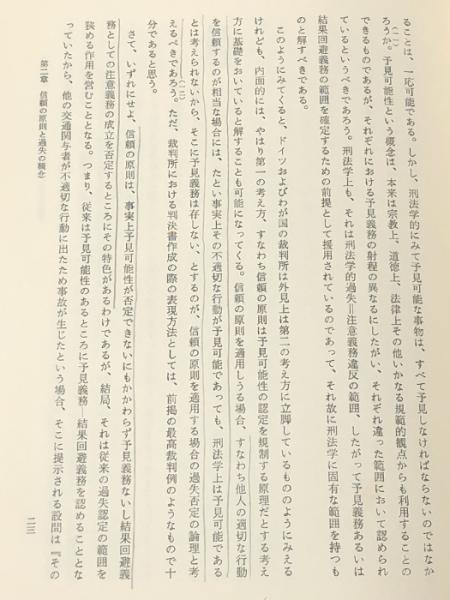 ることは、一応可能である。しかし、刑法学的にみて予見可能な事物は、すべて予見しなければならないのではなか
(一一)
ろうか。予見可能性という概念は、本来は宗教上、道徳上、法律上その他いかなる規範的観点からも利用することの
できるものであるが、それぞれにおける予見義務の射程の異なるにしたがい、それぞれ違った範囲において認められ
ているというべきであろう。刑法学上も、それは刑法学的過失=注意義務違反の範囲、したがって予見義務あるいは
結果回避義務の範囲を確定するための前提として援用されているのであって、それ故に刑法学に固有な範囲を持つも
のと解すべきである。
このようにみてくると、ドイツおよびわが国の裁判所は外見上は第二の考え方に立脚しているもののようにみえる
けれども、内面的には、やはり第一の考え方、すなわち信頼の原則は予見可能性の認定を規制する原理だとする考え
方に基礎をおいていると解することも可能になってくる。信頼の原則を適用しうる場合、すなわち他人の適切な行動
を信頼するのが相当な場合には、たとい事実上その不適切な行動が予見可能であっても、刑法学上は予見可能である
とは考えられないから、そこに予見義務は存しない、とするのが、信頼の原則を適用する場合の過失否定の論理と考
(一二)
えるべきであろう。ただ、裁判所における判決書作成の際の表現方法としては、前掲の最高裁判例のようなもので十
分であると思う。
さて、いずれにせよ、信頼の原則は、事実上予見可能性が否定できないにもかかわらず予見義務ないし結果回避義
務としての注意義務の成立を否定するところにその特色があるわけであるが、結局、それは従来の過失認定の範囲を
狭める作用を営むこととなる。つまり、従来は予見可能性のあるところに予見義務—結果回避義務を認めることとな
っていたから、他の交通関与者が不適切な行動に出たため事故が生じたという場合、そこに提示される設問は『その
第二章 信頼の原則と過失の概念
二三